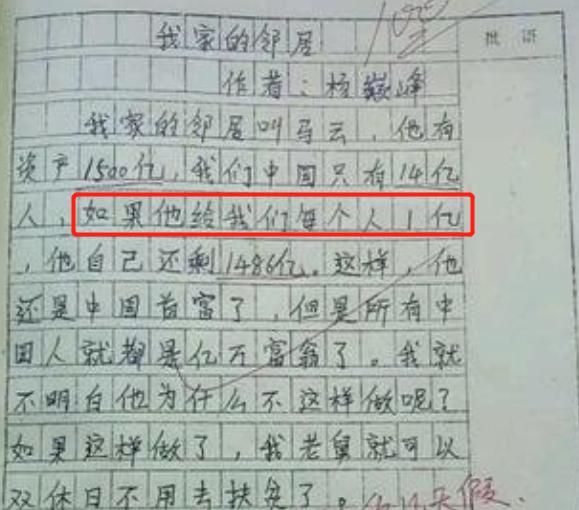 我家的邻居
批语
作者：杨巅峰
我家的邻居叫马云，他有
资产1500亿，我们中国只有14亿
人，如果他给我们每个人1亿
，他自己还剩1486亿。这样，他
还是中国首富了，但是所有中
国人就都是亿万富翁了。我就
不明白他为什么不这样做呢？
如果这样做了，我老舅就可以
双休日不用去扶贫了。